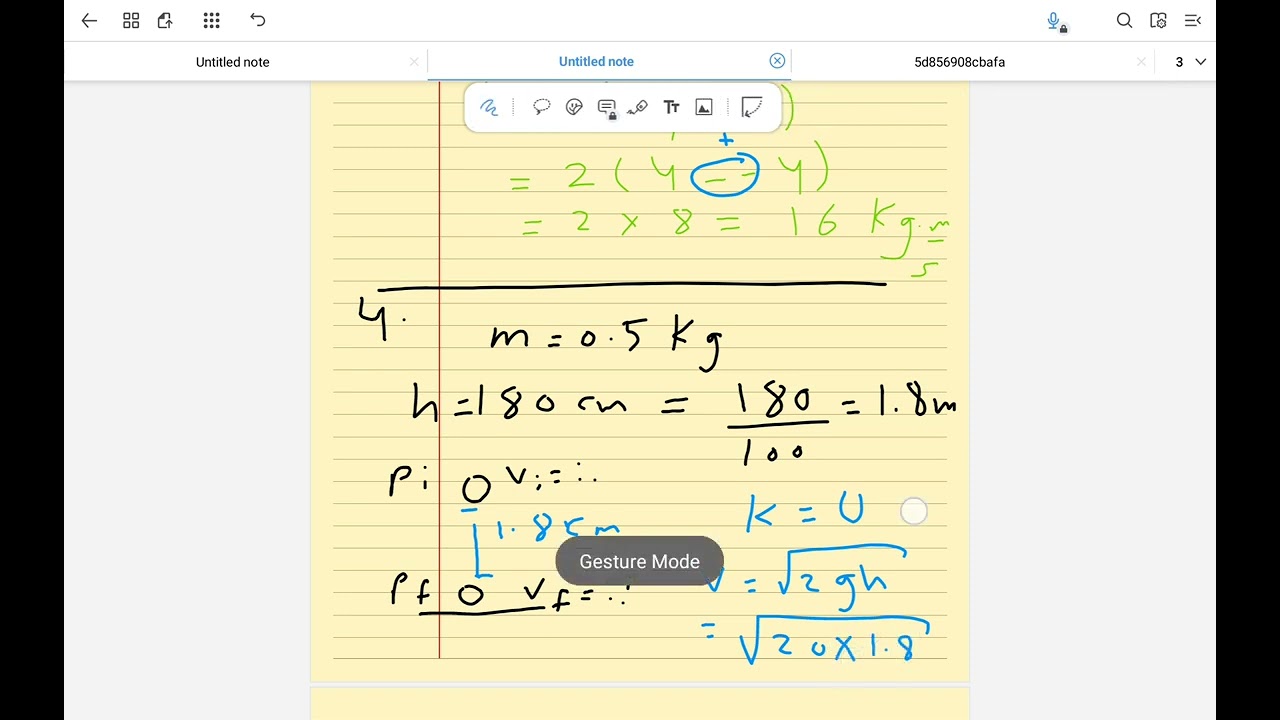 Untitled note
Untitled note
5d856908cbafa
3
Tt
)
+
= 2 ( 4 - - 4 )
= 2 x 8 = 16 Kg.m
s
4.
m = 0.5 Kg
h = 180 cm = 180 = 1.8m
100
Pi O Vi =
K = U
Gesture Mode
V = √2gh
Pf O Vf =
= √20x1.8